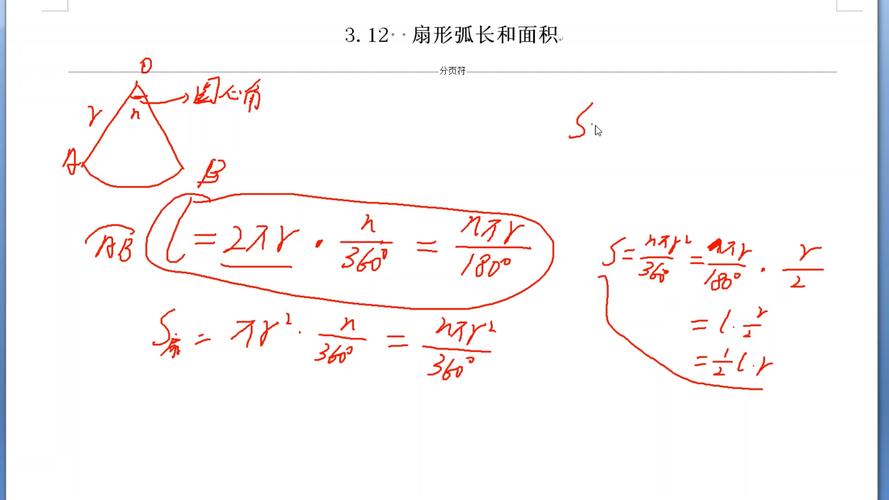 3.12 扇形弧长和面积
分页符
O
r n → 圆心角
A B
S
AB l = 2πr · n/360° = nπr/180°
S扇 = πr² · n/360° = nπr²/360°
S = nπr²/360° = nπr/180° · r/2
= l · r/2
= 1/2 l · r